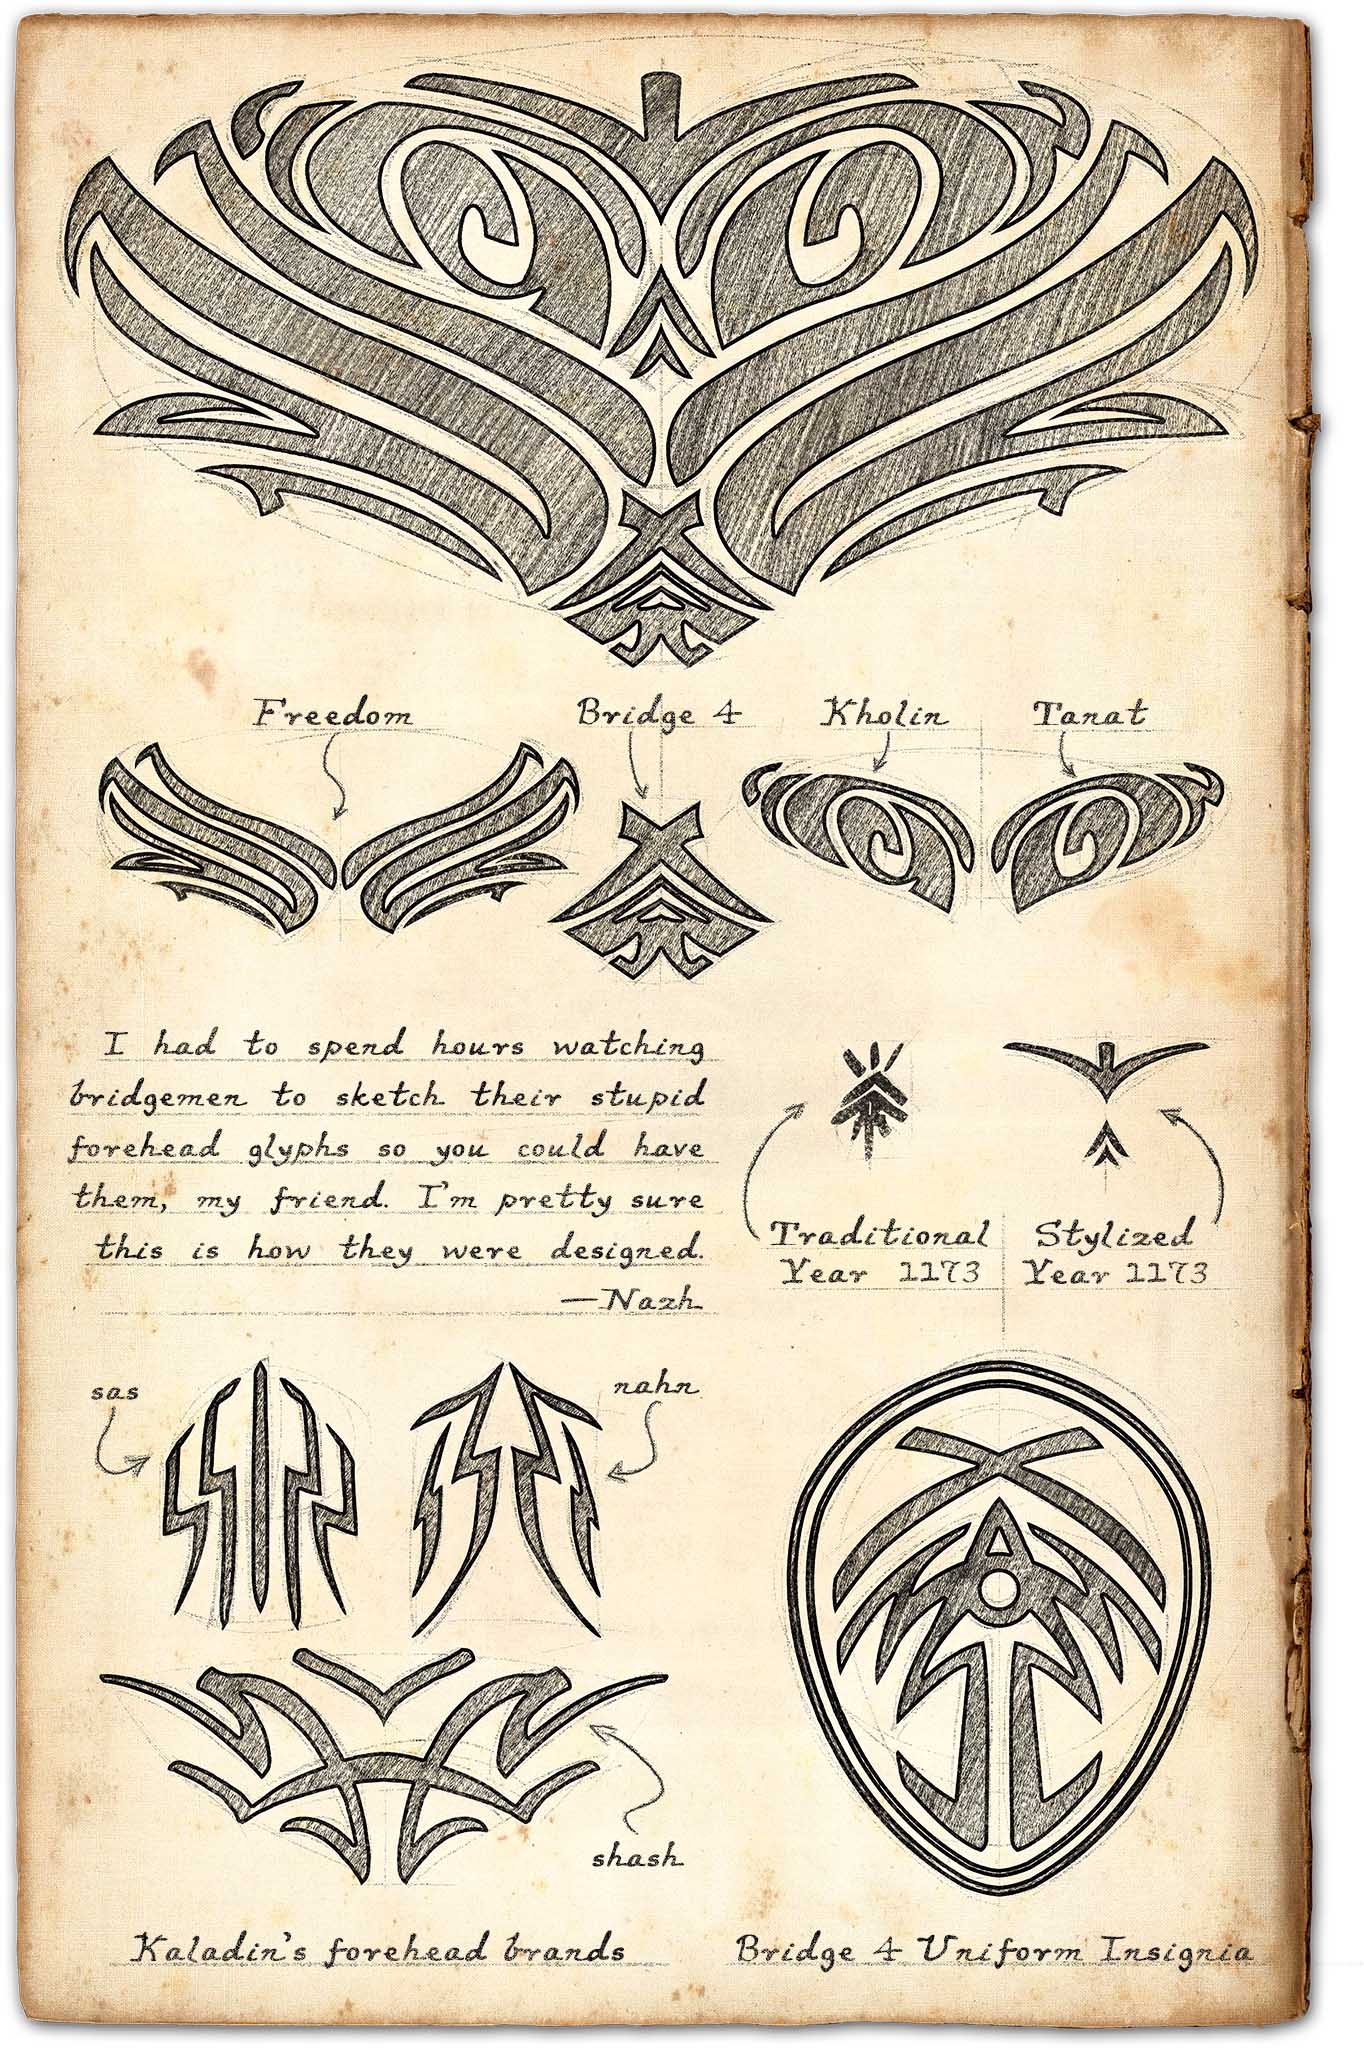 Freedom
Bridge 4
Kholin
Tanat
I had to spend hours watching
bridgemen to sketch their stupid
forehead glyphs so you could have
them, my friend. I'm pretty sure
this is how they were designed.
—Nazh
Traditional
Year 1173
Stylized
Year 1173
sas
nahn
shash
Kaladin's forehead brands
Bridge 4 Uniform Insignia